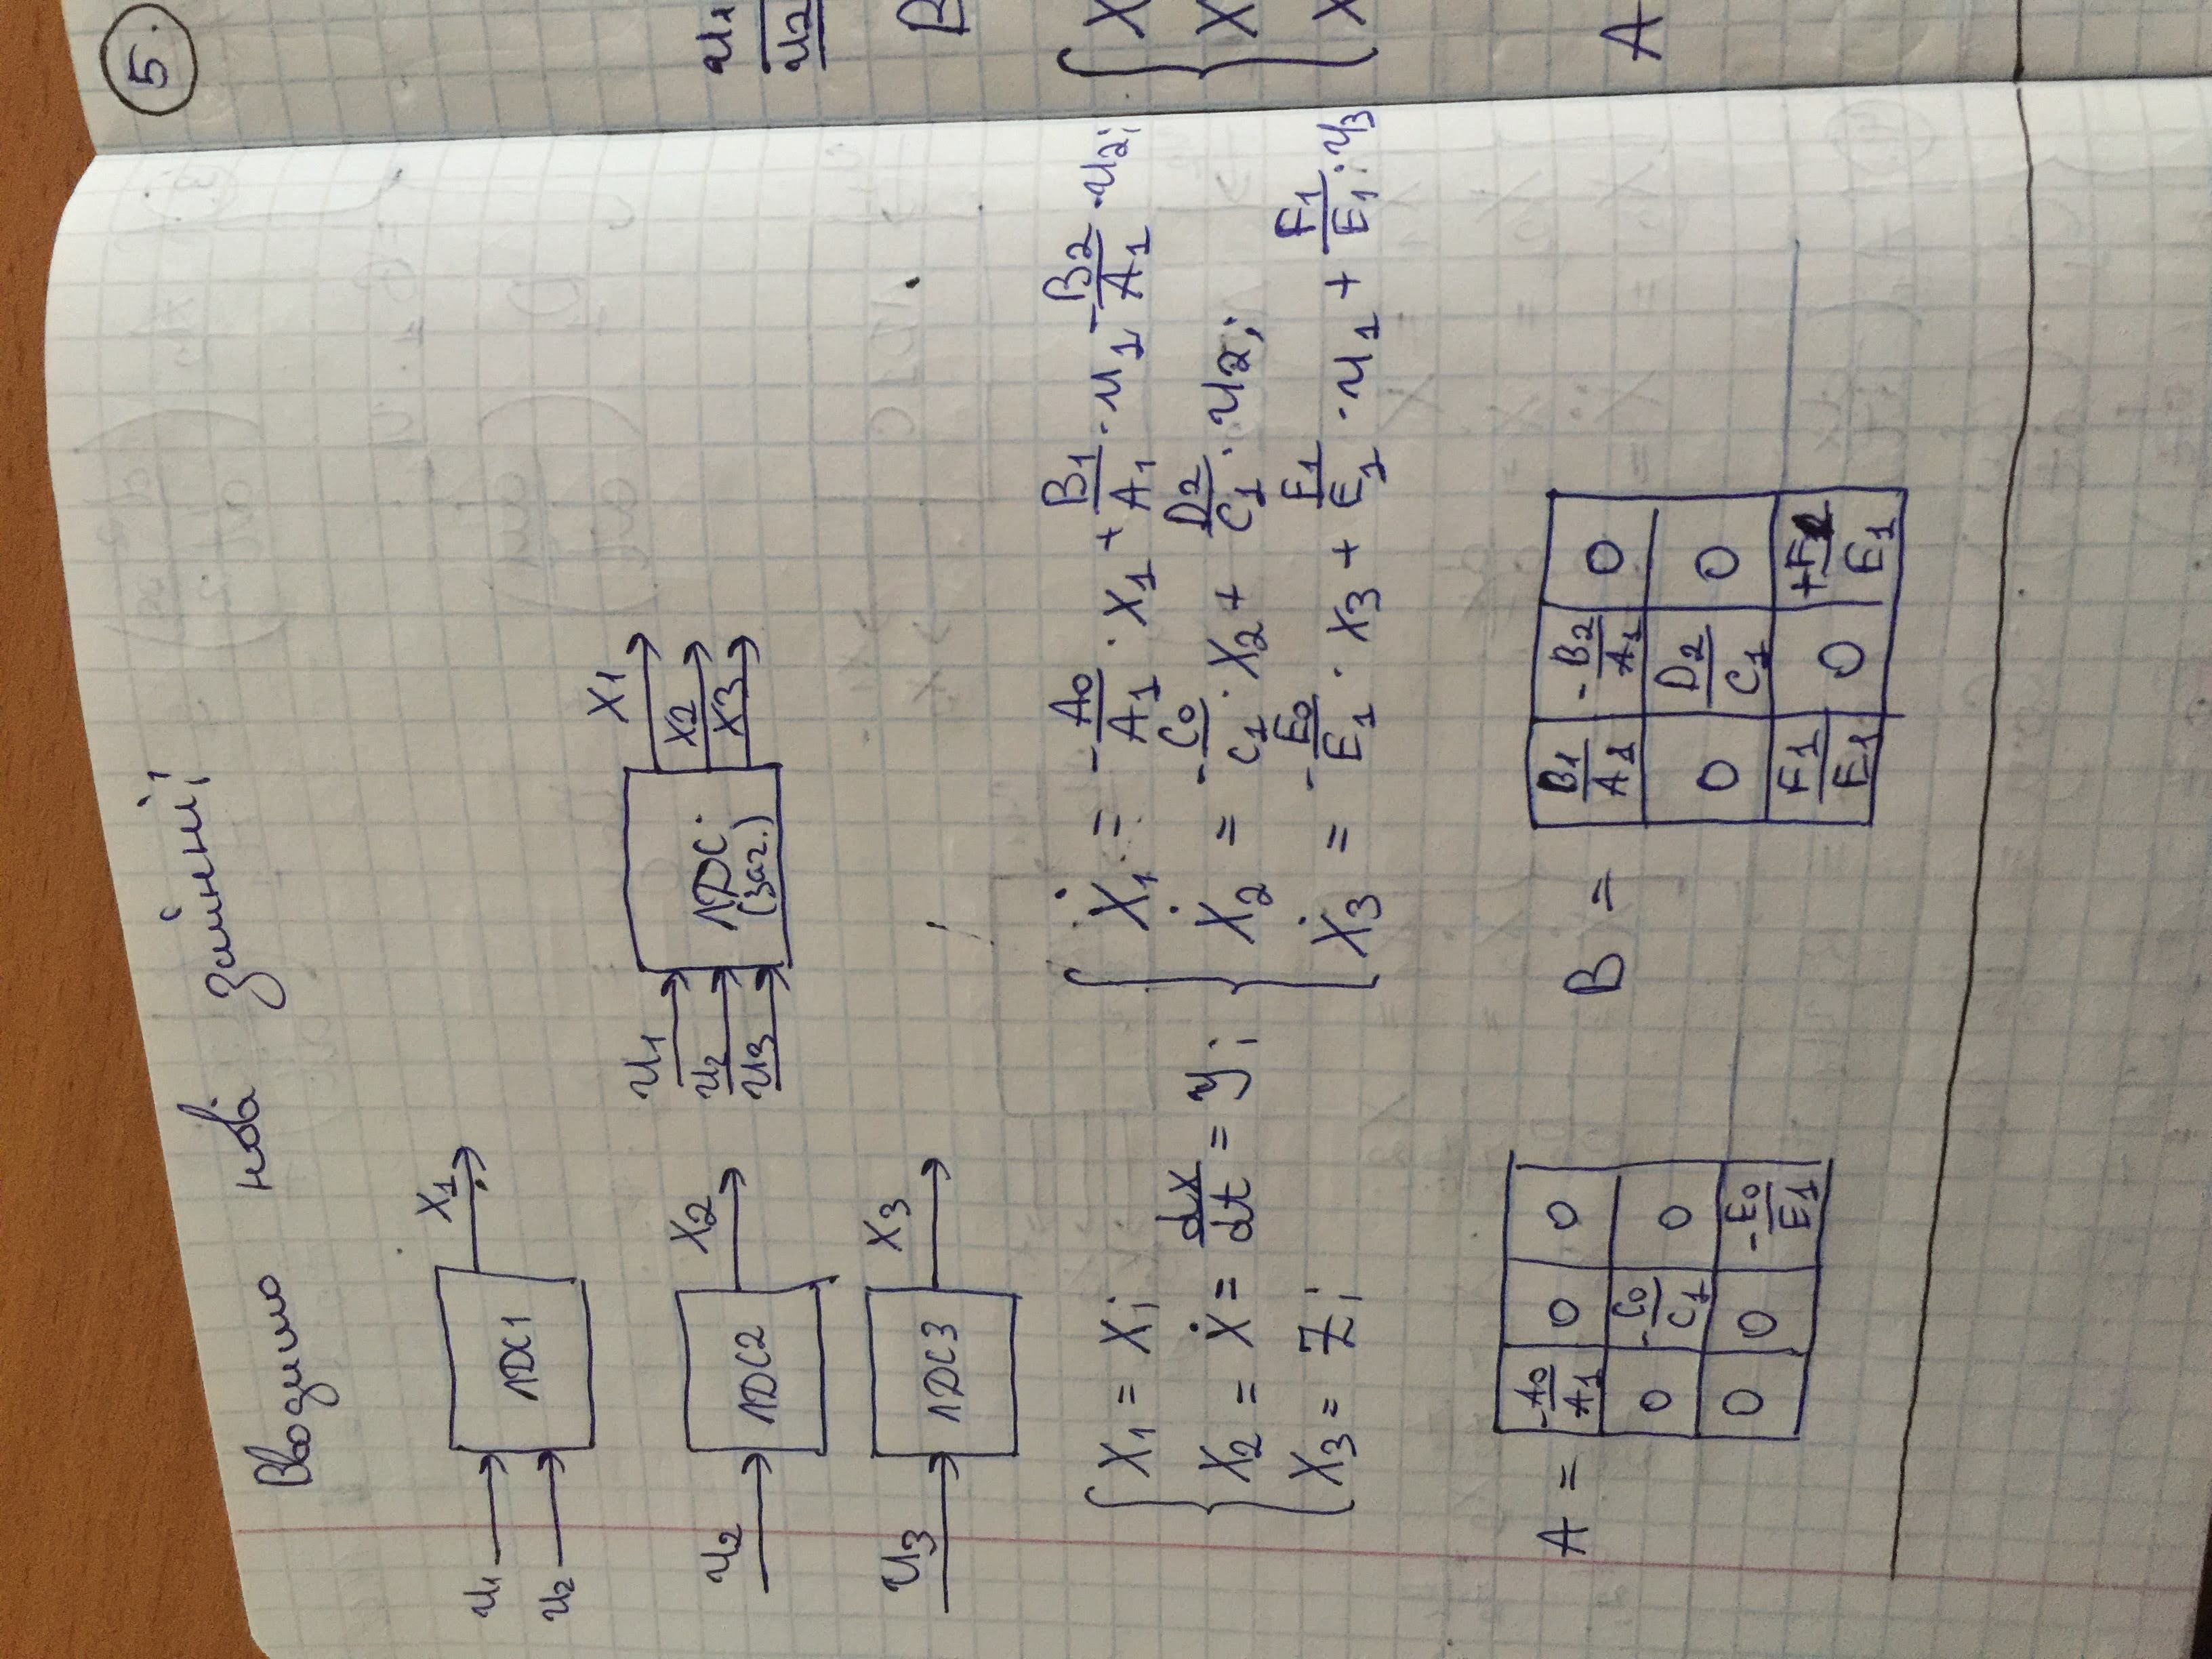 Вводимо нові змінні;
5.
u1
u2
ЛДС1
X1
u2
ЛДС2
X2
u3
ЛДС3
X3
u1
u2
u3
ЛДС
(заг.)
X1
X2
X3
u1
u2
B
X1 = X;
X2 = Ẋ = dx/dt = y;
X3 = Z;
Ẋ1 = -A0/A1 · X1 + B1/A1 · u1 - B2/A1 · u2;
Ẋ2 = -C0/C1 · X2 + D2/C1 · u2;
Ẋ3 = -E0/E1 · X3 + F1/E1 · u1 + F1/E1 · u3
X
X
X
A =
-A0/A1 0 0
0 -C0/C1 0
0 0 -E0/E1
B =
B1/A1 -B2/A1 0
0 D2/C1 0
F1/E1 0
A